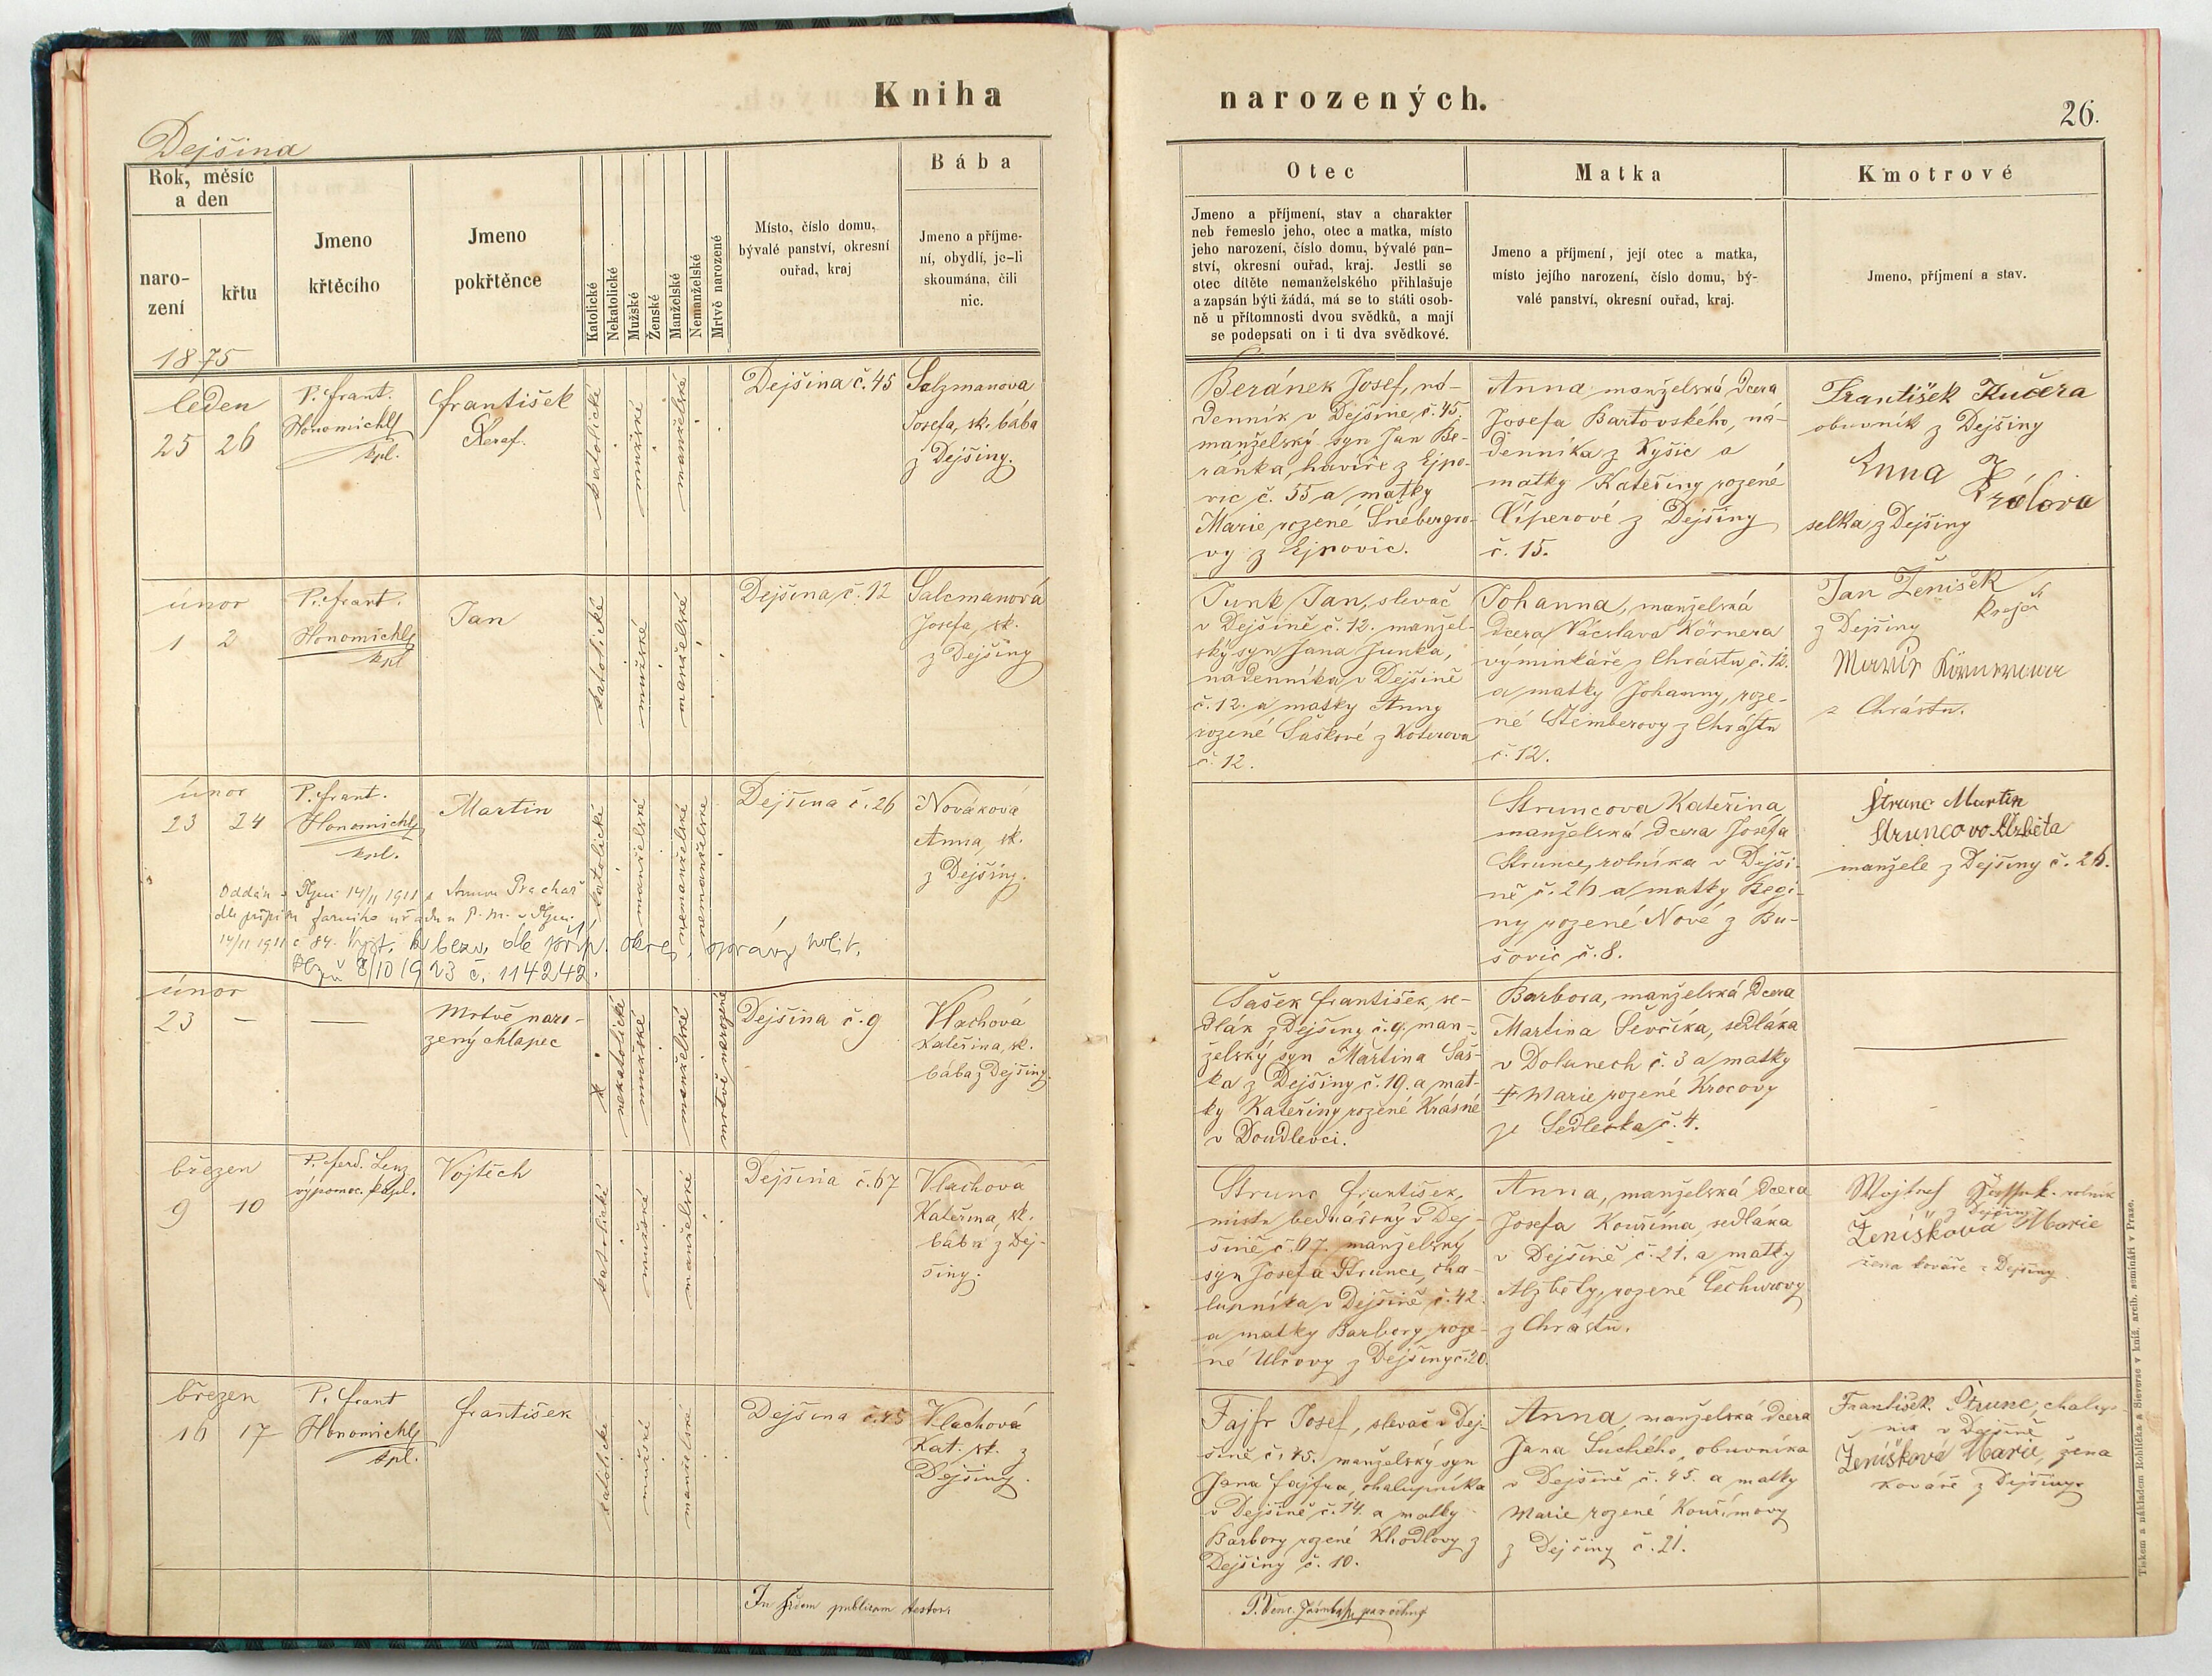 Kniha
narozených.
26.
Dejšina
Rok, měsíc
a den
naro-
zení
křtu
Jmeno
křtěcího
Jmeno
pokřtěnce
Katolické
Nekatolické
Mužské
Ženské
Manželské
Nemanželské
Mrtvě narozené
Místo, číslo domu,
bývalé panství, okresní
ouřad, kraj
Bába
Jmeno a příjme-
ní, obydlí, je-li
skoumána, čili
nic.
Otec
Jmeno a příjmení, stav a charakter
neb řemeslo jeho, otec a matka, místo
jeho narození, číslo domu, bývalé pan-
ství, okresní ouřad, kraj. Jestli se
otec dítěte nemanželského přihlašuje
a zapsán býti žádá, má se to státi osob-
ně u přítomnosti dvou svědků, a mají
se podepsati on i ti dva svědkové.
Matka
Jmeno a příjmení, její otec a matka,
místo jejího narození, číslo domu, bý-
valé panství, okresní ouřad, kraj.
Kmotrové
Jmeno, příjmení a stav.
1875
leden
25 26
P. Frant.
Honomichl
kpl.
František
katolické
mužské
manželské
Dejšina č. 45
Salzmanova
Josefa, zk. bába
z Dejšiny.
Beránek Josef, ná-
denník v Dejšině č. 45.
manželský syn Jan Be-
ránka, havíře z Ejpo-
vic č. 55 a matky
Marie, rozené Šnebergro-
vy z Ejpovic.
Anna manželská dcera
Josefa Bartovského, ná-
denníka z Kyšic a
matky Kateřiny rozené
Číperové z Dejšiny
č. 15.
František Kučera
obuvník z Dejšiny
Anna
Králova
selka z Dejšiny
únor
1 2
P. Frant.
Honomichl
kpl
Jan
katolické
mužské
manželské
Dejšina č. 12
Salcmanová
Josefa, zk.
z Dejšiny
Junk Jan, slevač
v Dejšině č. 12. manžel-
ský syn Jana Junka,
nádenníka v Dejšině
č. 12. a matky Anny
rozené Šaškové z Koterova
č. 12.
Johanna, manželská
dcera Václava Körnera
výminkáře z Chrástu č. 12.
a matky Johanny, roze-
né Štemberovy z Chrástu
č. 12.
Jan Ženišek
krejčí
z Dejšiny
z Chrástu.
únor
23 24
P. Frant.
Honomichl
kpl.
Martin
katolické
nemanželské
nemanželské
Dejšina č. 26
Nováková
Anna, zk.
z Dejšiny.
Struncova Kateřina
manželská dcera Josefa
Strunce, rolníka v Dejši-
ně č. 26 a matky Regi-
ny rozené Nové z Bu-
šovic č. 8.
Strunc Martin
Struncova Alžběta
manžele z Dejšiny č. 26.
Oddán v Plzni 14/11 1911 s Annou Prachař
dle přípisu farního úřadu P. M. v Plzni
14/11 1911 č. 84. Vyst. z bezv. dle příp. okres. správy polit.
Plzeň 8/10 1923 č. 114242.
únor
23 — —
Mrtvě naro-
zený chlapec
nekatolické
mužské
manželské
mrtvě narozené
Dejšina č. 9
Vlachová
Kateřina, zk.
bába z Dejšiny.
Šašek František, se-
dlák z Dejšiny č. 9, man-
želský syn Martina Šaš-
ka z Dejšiny č. 19. a mat-
ky Kateřiny rozené Krásné
v Doudlevci.
Barbora, manželská dcera
Martina Ševčíka, sedláka
v Dolanech č. 3 a matky
Marie rozené Krocovy
ze Sedlecka č. 4.
březen
9 10
P. Ferd. Lenz
výpomoc. kapl.
Vojtěch
katolické
mužské
manželské
Dejšina č. 67
Vlachová
Kateřina, zk.
bába z Dej-
šiny.
Strunc František,
mistr bednářský v Dej-
šině č. 67. manželský
syn Josefa Strunce, cha-
lupníka v Dejšině č. 42.
a matky Barbory roze-
né Ulčovy z Dejšiny č. 20.
Anna, manželská dcera
Josefa Kouříma, sedláka
v Dejšině č. 21. a matky
Alžběty, rozené Čechurovy
z Chrástu.
rolník
z Dejšiny
Ženíšková Marie
žena kováře z Dejšiny
březen
16 17
P. Frant
Honomichl
kpl.
František
katolické
mužské
manželské
Dejšina č. 45
Vlachová
Kat. zk. z
Dejšiny.
Fajfr Josef, slevač v Dej-
šině č. 45. manželský syn
Jana Fajfra, chalupníka
v Dejšině č. 14. a matky
Barbory rozené Khodlovy z
Dejšiny č. 10.
Anna, manželská dcera
Jana Suchého, obuvníka
v Dejšině č. 45. a matky
Marie rozené Kouřimovy
z Dejšiny č. 21.
František Strunc, chalup-
ník v Dejšině
Ženíšková Marie, žena
kováře z Dejšiny
In fidem publicam testor:
Tiskem a nákladem Rohlíčka a Sieverse v kníž. arcib. semináři v Praze.